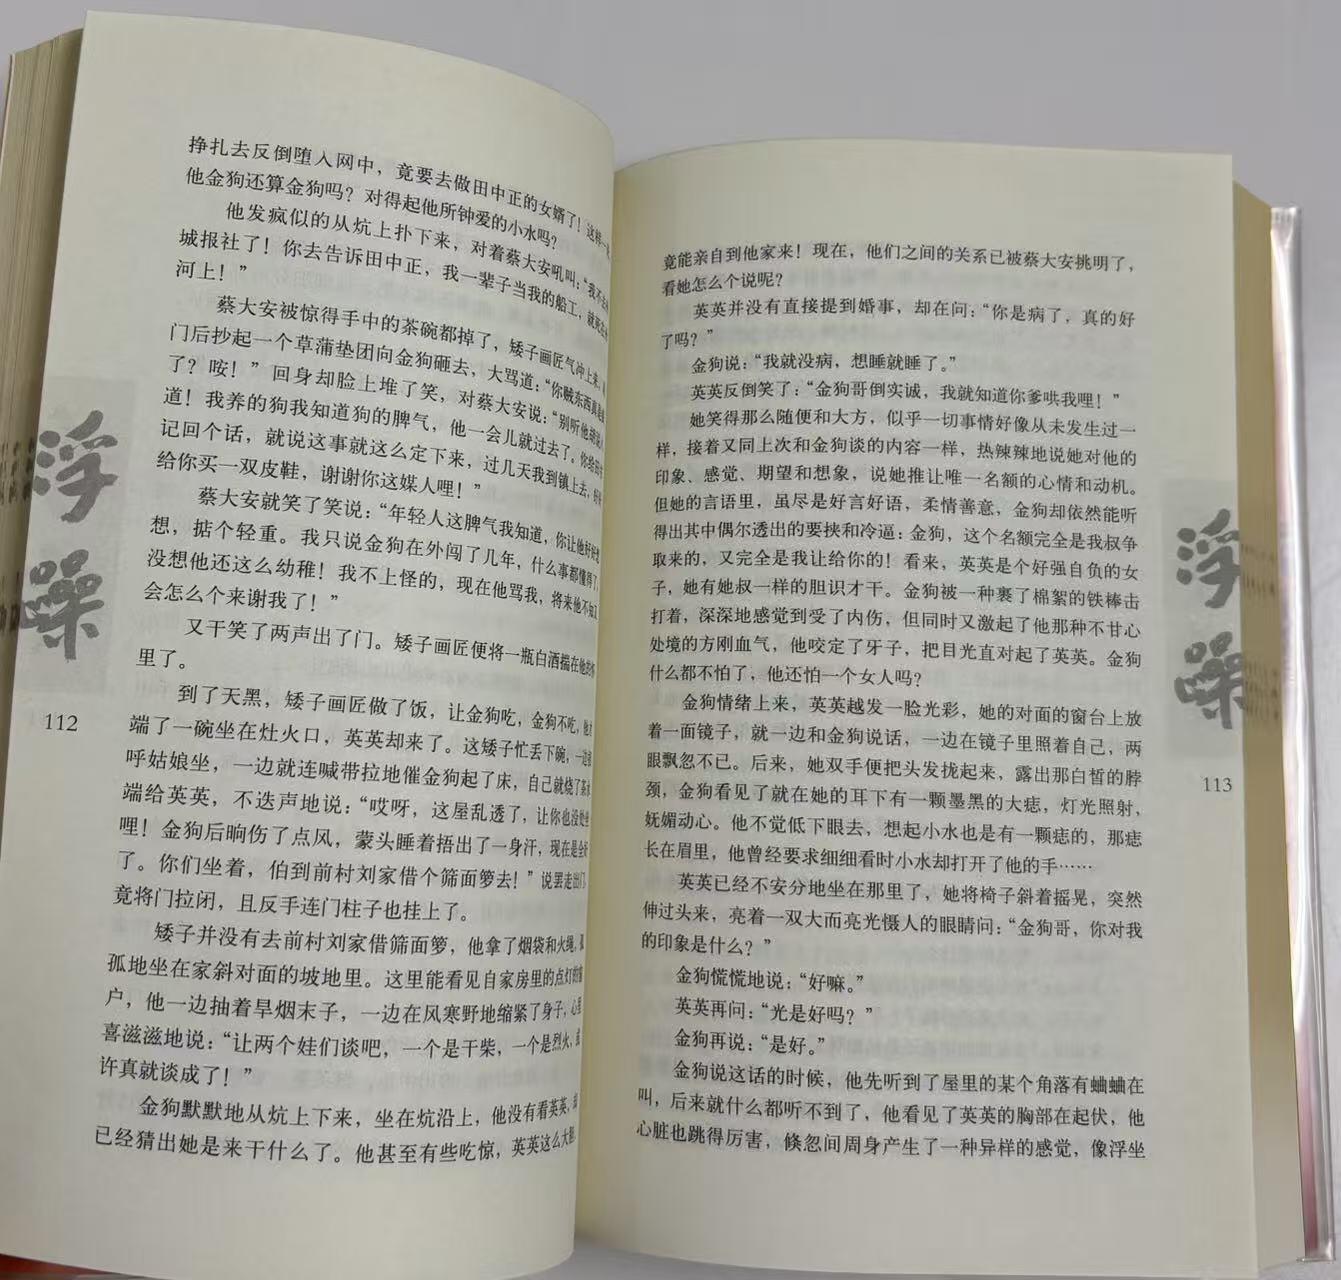 挣扎去反倒堕入网中，竟要去做田中正的女婿了！这样一
他金狗还算金狗吗？对得起他所钟爱的小水吗？
他发疯似的从炕上扑下来，对着蔡大安吼叫：“我不去
城报社了！你去告诉田中正，我一辈子当我的船工，就死
河上！”
蔡大安被惊得手中的茶碗都掉了，矮子画匠气冲上来，
门后抄起一个草蒲垫团向金狗砸去，大骂道：“你贼东西真是
了？咹！”回身却脸上堆了笑，对蔡大安说：“别听他胡说
道！我养的狗我知道狗的脾气，他一会儿就过去了。你给田
记回个话，就说这事就这么定下来，过几天我到镇上去，
给你买一双皮鞋，谢谢你这媒人哩！”
蔡大安就笑了笑说：“年轻人这脾气我知道，你让他好好想
想，掂个轻重。我只说金狗在外闯了几年，什么事都懂得了，
没想他还这么幼稚！我不上怪的，现在他骂我，将来他不知又
会怎么个来谢我了！”
又干笑了两声出了门。矮子画匠便将一瓶白酒揣在他
里了。
到了天黑，矮子画匠做了饭，让金狗吃，金狗不吃，他才
端了一碗坐在灶火口，英英却来了。这矮子忙丢下碗，一边
呼姑娘坐，一边就连喊带拉地催金狗起了床，自己就烧了茶水
端给英英，不迭声地说：“哎呀，这屋乱透了，让你也没处坐
哩！金狗后晌伤了点风，蒙头睡着捂出了一身汗，现在是全好
了。你们坐着，伯到前村刘家借个筛面箩去！”说罢走出门，
竟将门拉闭，且反手连门柱子也挂上了。
矮子并没有去前村刘家借筛面箩，他拿了烟袋和火绳，孤
孤地坐在家斜对面的坡地里。这里能看见自家房里的点灯的窗
户，他一边抽着旱烟末子，一边在风寒野地缩紧了身子，心里
喜滋滋地说：“让两个娃们谈吧，一个是干柴，一个是烈火，或
许真就谈成了！”
金狗默默地从炕上下来，坐在炕沿上，他没有看英英，却
已经猜出她是来干什么了。他甚至有些吃惊，英英这么大胆，
浮
噪
112
竟能亲自到他家来！现在，他们之间的关系已被蔡大安挑明了，
看她怎么个说呢？
英英并没有直接提到婚事，却在问：“你是病了，真的好
了吗？”
金狗说：“我就没病，想睡就睡了。”
英英反倒笑了：“金狗哥倒实诚，我就知道你爹哄我哩！”
她笑得那么随便和大方，似乎一切事情好像从未发生过一
样，接着又同上次和金狗谈的内容一样，热辣辣地说她对他的
印象、感觉、期望和想象，说她推让唯一名额的心情和动机。
但她的言语里，虽尽是好言好语，柔情善意，金狗却依然能听
得出其中偶尔透出的要挟和冷逼：金狗，这个名额完全是我叔争
取来的，又完全是我让给你的！看来，英英是个好强自负的女
子，她有她叔一样的胆识才干。金狗被一种裹了棉絮的铁棒击
打着，深深地感觉到受了内伤，但同时又激起了他那种不甘心
处境的方刚血气，他咬定了牙子，把目光直对起了英英。金狗
什么都不怕了，他还怕一个女人吗？
金狗情绪上来，英英越发一脸光彩，她的对面的窗台上放
着一面镜子，就一边和金狗说话，一边在镜子里照着自己，两
眼飘忽不已。后来，她双手便把头发拢起来，露出那白皙的脖
颈，金狗看见了就在她的耳下有一颗墨黑的大痣，灯光照射，
妩媚动心。他不觉低下眼去，想起小水也是有一颗痣的，那痣
长在眉里，他曾经要求细细看时小水却打开了他的手……
英英已经不安分地坐在那里了，她将椅子斜着摇晃，突然
伸过头来，亮着一双大而亮光慑人的眼睛问：“金狗哥，你对我
的印象是什么？”
金狗慌慌地说：“好嘛。”
英英再问：“光是好吗？”
金狗再说：“是好。”
金狗说这话的时候，他先听到了屋里的某个角落有蛐蛐在
叫，后来就什么都听不到了，他看见了英英的胸部在起伏，他
心脏也跳得厉害，倏忽间周身产生了一种异样的感觉，像浮坐
浮
噪
113